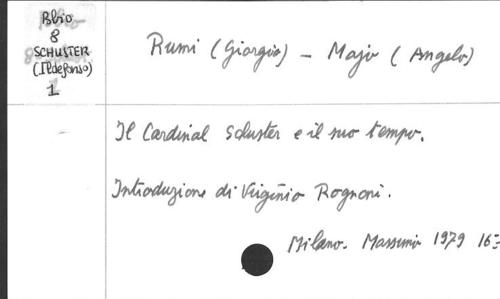 Bbio
8
SCHUSTER
(Ildefonso)
1
Rumi (Giorgio) - Majo (Angelo)
Il Cardinal Schuster e il suo tempo.
Introduzione di Virginio Rognoni.
Milano. Massimo 1979 16